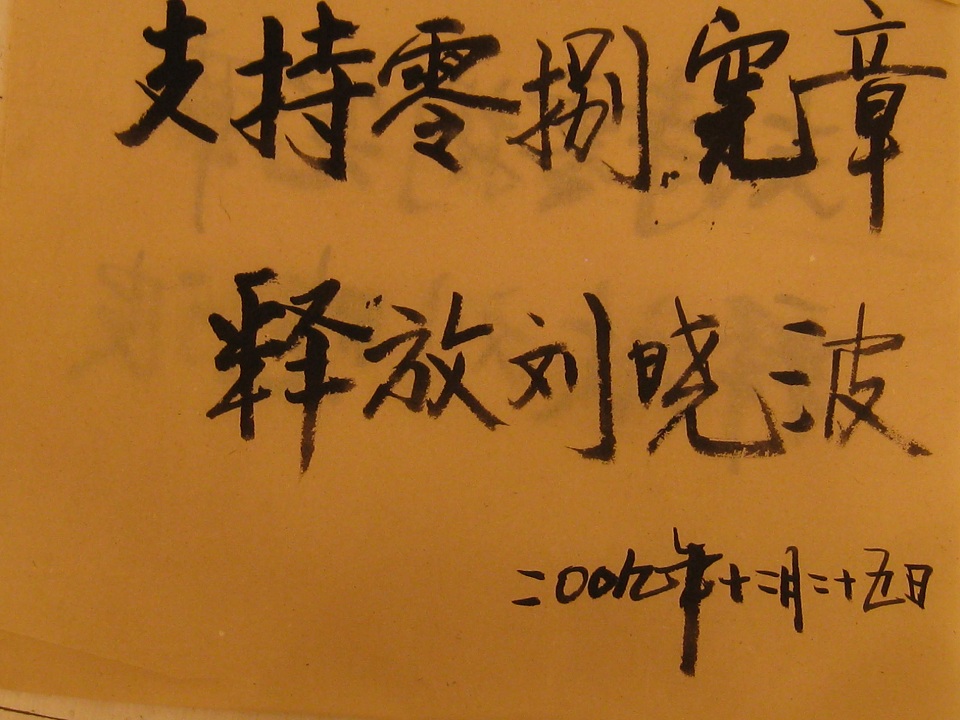 支持零捌宪章
释放刘晓波
二00九年十二月二十五日